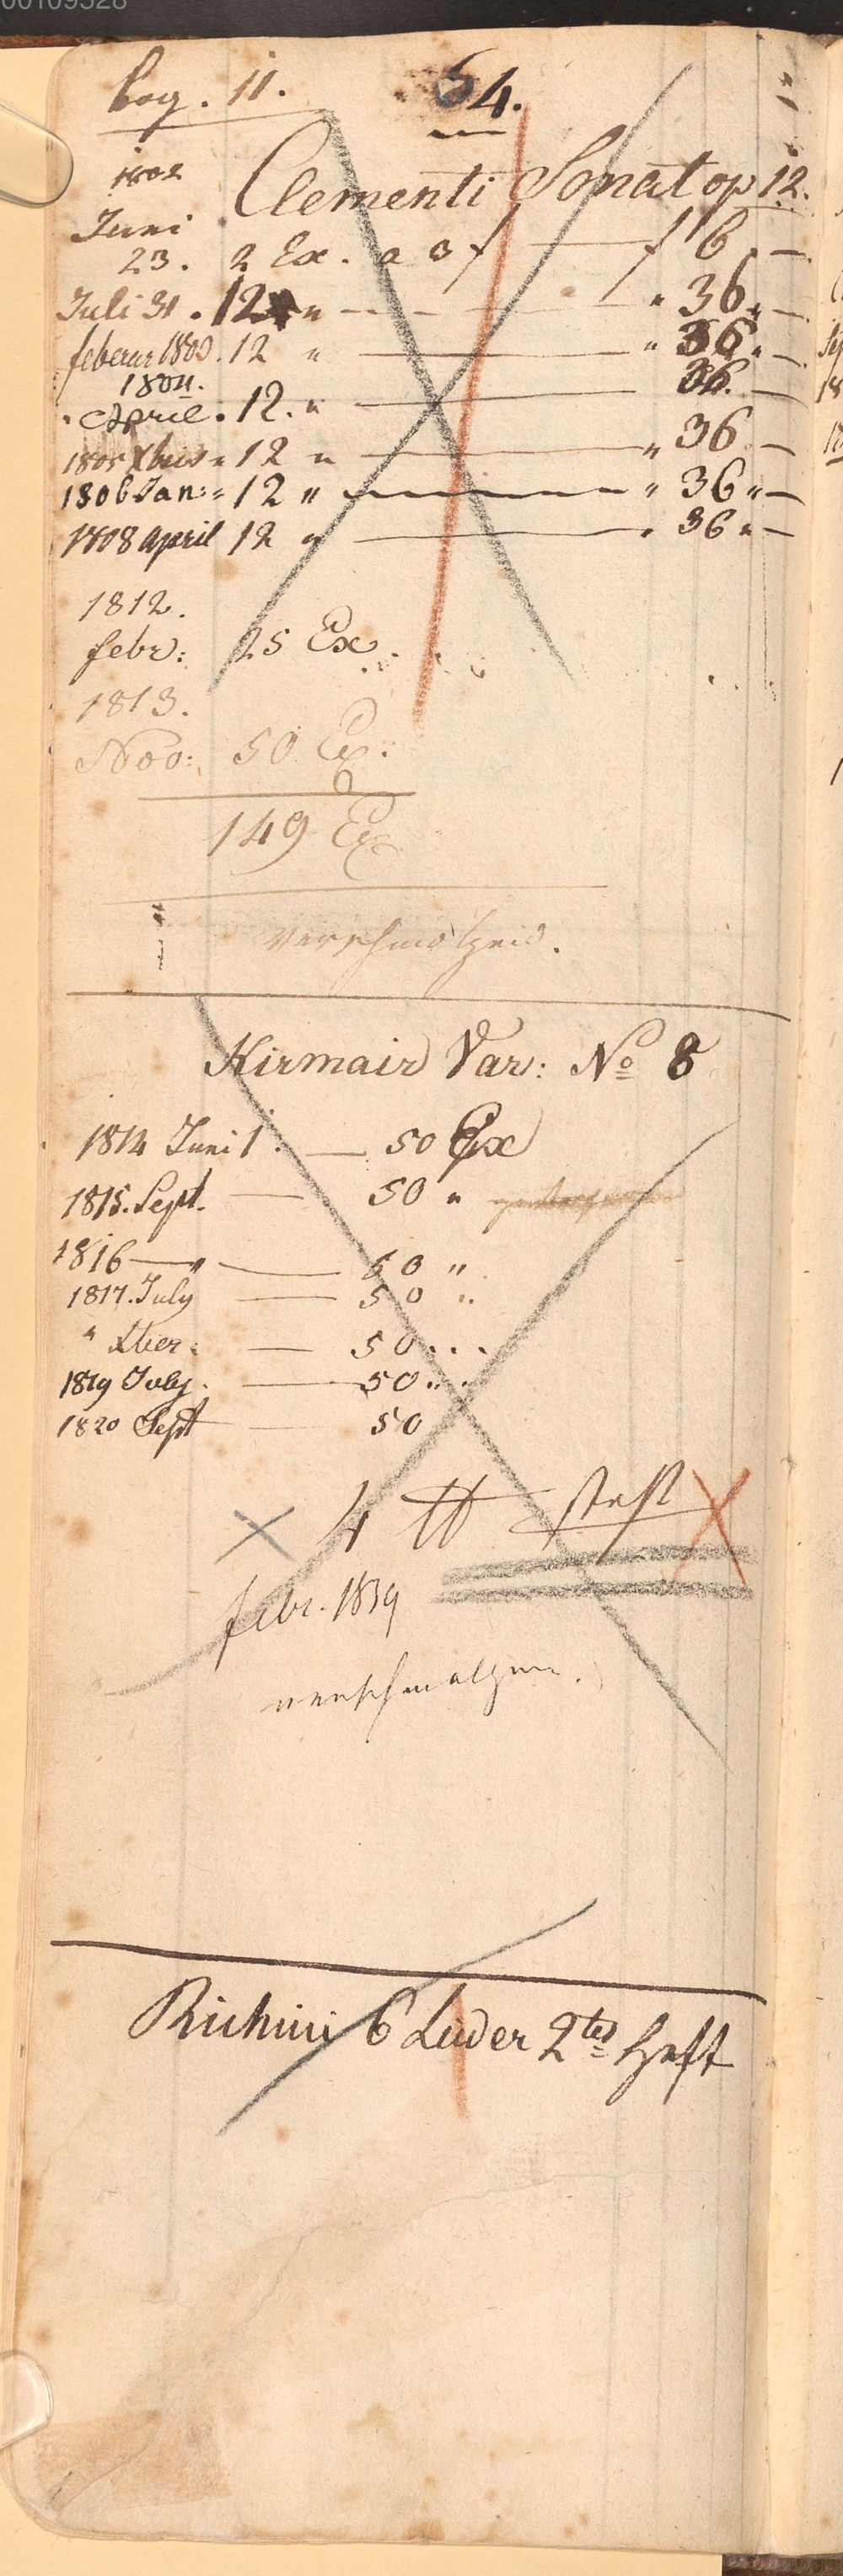 00109528
bog. 11. 54.
1802 Clementi Sonat op 12.
Juni
23. 2 Ex. a 3 f — f 6. —
Juli 31. 12 " — " 36 " —
feberar 1803. 12 " — " 36 " —
1804.
April. 12. " — 36. —
1805 Xbris " 12 " — " 36 —
1806 Jan: " 12 " — " 36 " —
1808 April 12 " — " 36 " —
1812.
febr: 25 Ex.
1813.
Nov: 50 Ex.
149 Ex
verschmolzen.
Kirmair Var: No 8
1814 Juni 1. — 50 Ex
1815. Sept. — 50 "
1816 — " — 50 "
1817. July — 50 "
" Xber. — 50 . . .
1819 July. — 50 . . .
1820 Sept — 50
4 tt
febr. 1839
verschmolzen.
6 Lieder 2tes Heft